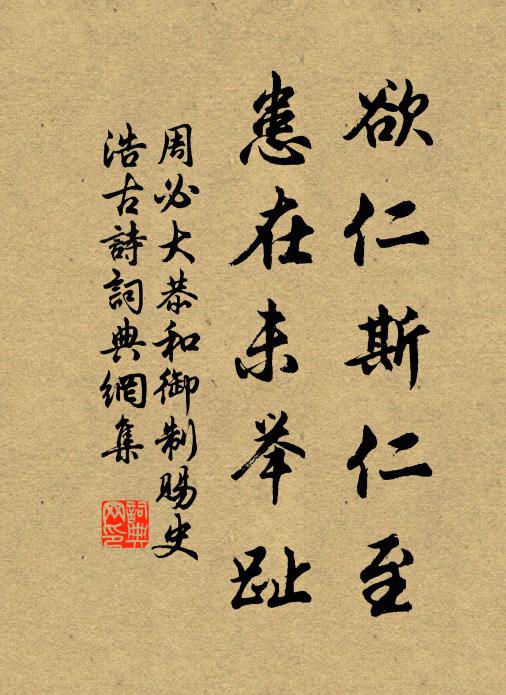 欲仁斯仁至
患在未举趾
周必大恭和御制赐史
浩古詩詞典網集
詞典网印